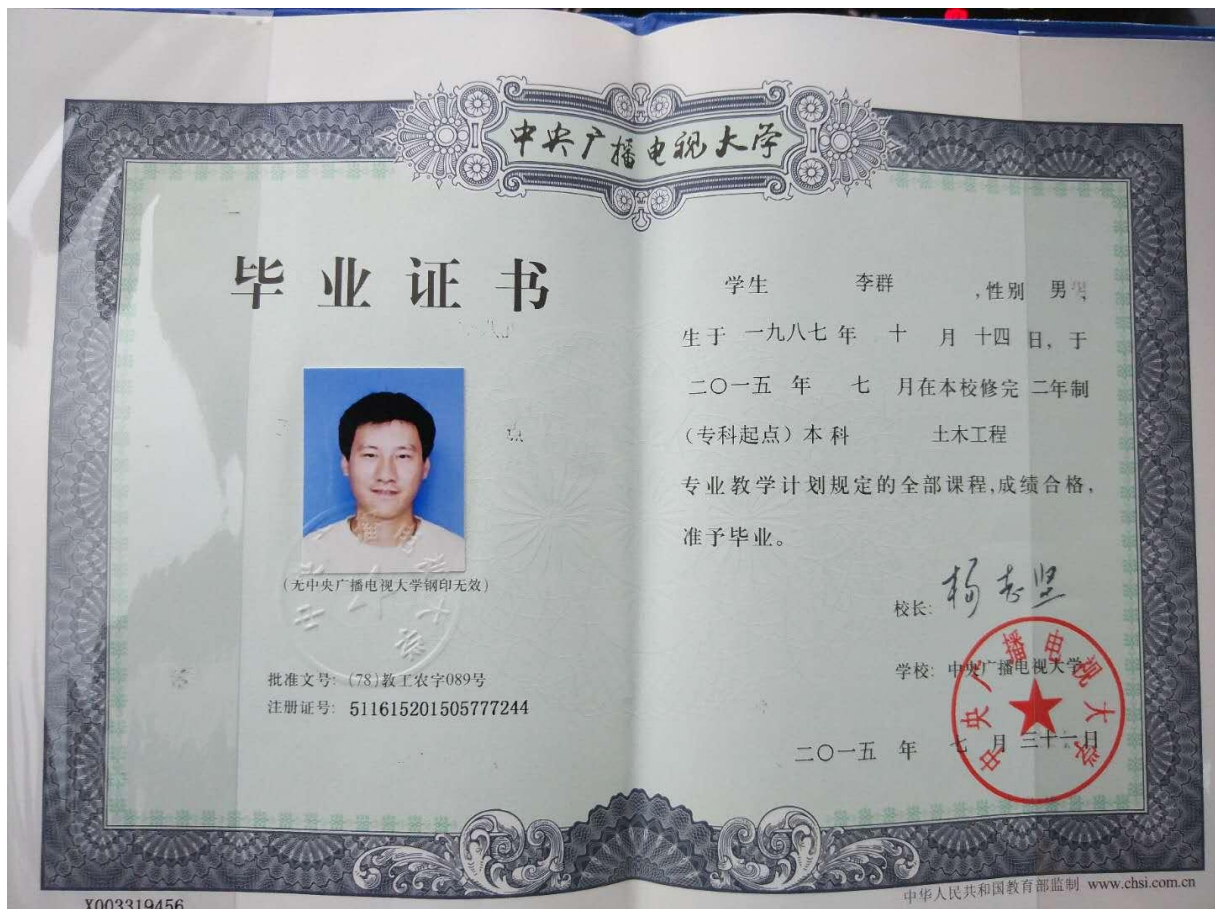 中央广播电视大学
毕业证书
(无中央广播电视大学钢印无效)
批准文号: (78)教工农字089号
注册证号: 511615201505777244
学生 李群 ,性别 男,
生于 一九八七 年 十 月 十四 日, 于
二〇一五 年 七 月在本校修完 二年制
(专科起点) 本科 土木工程
专业教学计划规定的全部课程,成绩合格,
准予毕业。
校长: 杨志坚
学校: 中央广播电视大学
二〇一五 年 七 月 三十一日
中央广播电视大学
X003319456
中华人民共和国教育部监制 www.chsi.com.cn